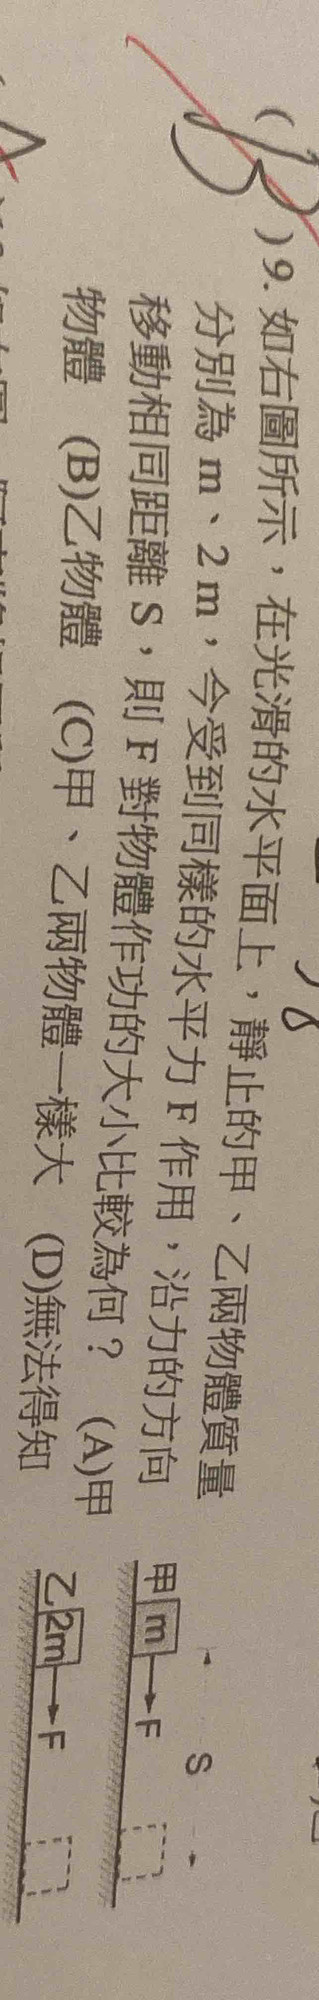 ( B )9. 如右圖所示，在光滑的水平面上，靜止的甲、乙兩物體質量
分別為 m、2 m，今受到同樣的水平力 F 作用，沿力的方向
移動相同距離 S，則 F 對物體作功的大小比較為何？ (A)甲
物體 (B)乙物體 (C)甲、乙兩物體一樣大 (D)無法得知
S
甲 m F
乙 2m F